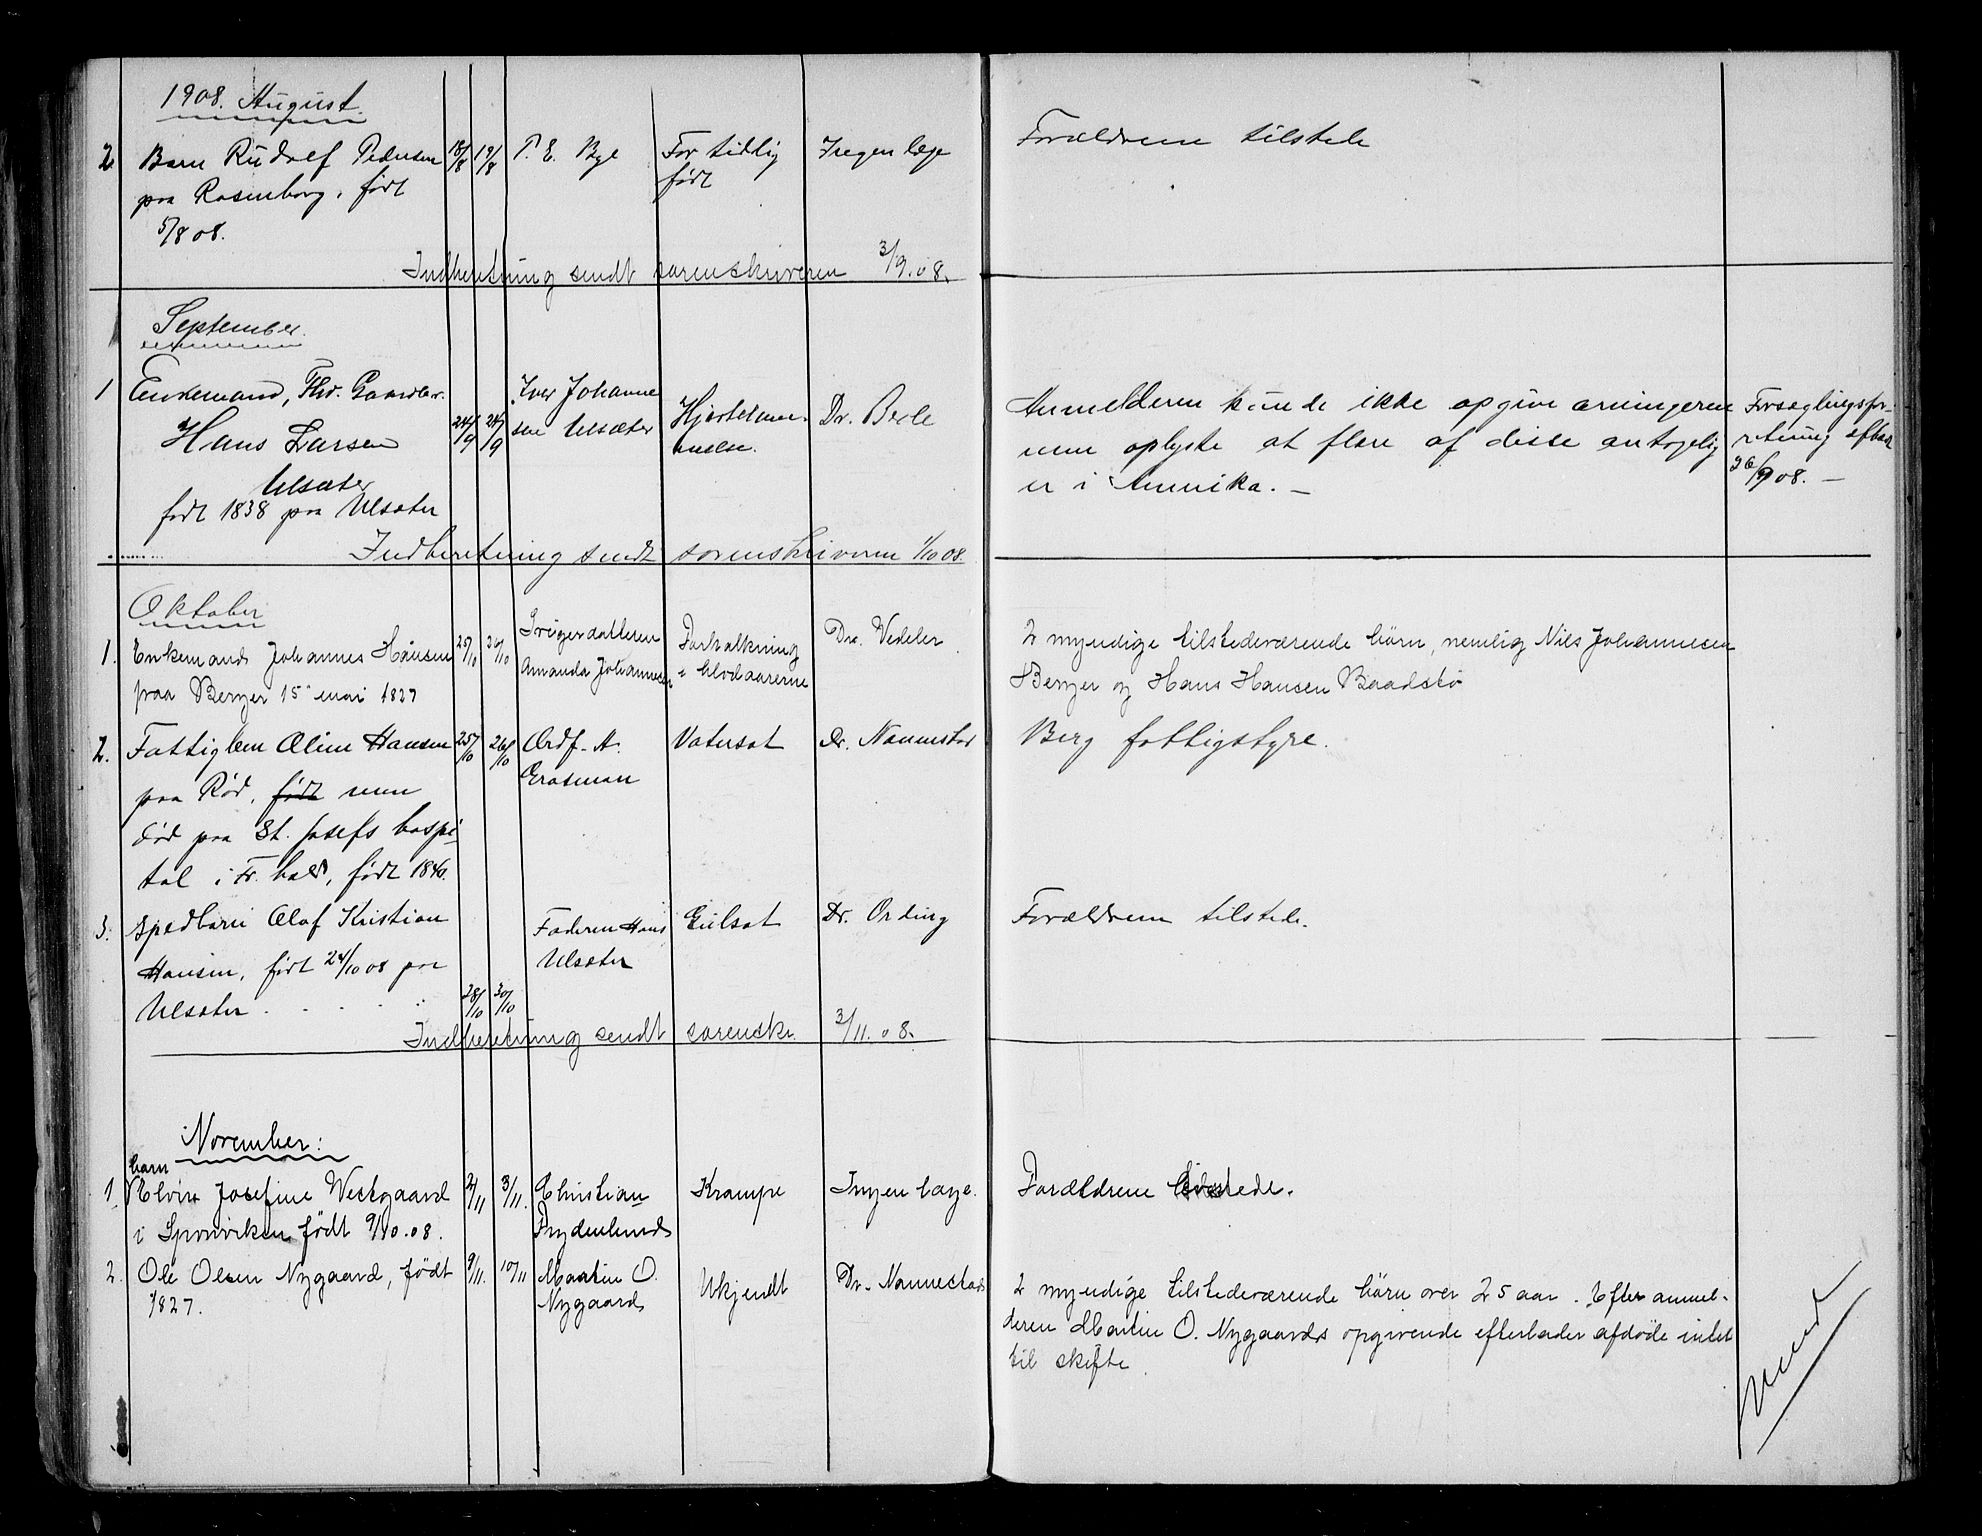 1908. August.
2 Barn Rudolf Pedersen 18/8 19/8 P. E. Bye For tidlig Ingen læge Forældrene tilstede
paa Rosenborg, født født
5/8 08.
Indberetning sendt sorenskriveren 3/9.08.
September.
1 Enkemand, Fhv. Gaardbr. 24/9 24/9 Iver Johanne Hjertelam- Dr. Bede Anmelderen kunde ikke opgive arvingerne Forseglingsfor-
Hans Larsen sen Ulsæter melse. men oplyste at flere af disse antagelig retning afhol
Ulsæter er i Amerika. — 26/9 08. —
født 1838 paa Ulsæter
Indberetning sendt sorenskriveren 1/10 08.
Oktober
1. Enkemand Johannes Hansen 25/10 26/10 Svigerdatteren Forkalkning Dr. Vedeler 2 myndige tilstedeværende börn, nemlig Nils Johannesen
paa Berger 15 mai 1827 Amanda Johannesen i blodaarerne Berger og Hans Hansen Baadstø
2. Fattiglem Oline Hansen 25/10 26/10 Ordf. A. Vatersot Dr. Nannestad Berg fattigstyre.
paa Rød, født men Erasman
død paa St. Josefs hospi-
tal i Fr.hald, født 1840.
3. Spedbarn Olaf Kristian Faderen Hans Gulsot Dr. Ording Forældrene tilstede.
Hansen, født 24/10 08 paa Ulsæter
Ulsæter . . . . 28/10 30/10
Indberetning sendt sorenskr. 3/11.08.
November:
barn
1. Elvira Josefine Westgaard 2/11 3/11. Christian Krampe Ingen læge. Forældrene tilstede.
i Sponviken født 9/10.08. Brydenlund
2. Ole Olsen Nygaard, født 9/11. 10/11 Martin O. Ukjendt Dr. Nannestad 2 myndige tilstedeværende börn over 25 aar. Efter anmel-
1827. Nygaard deren Martin O. Nygaards opgivende efterlader afdöde intet
til skifte.